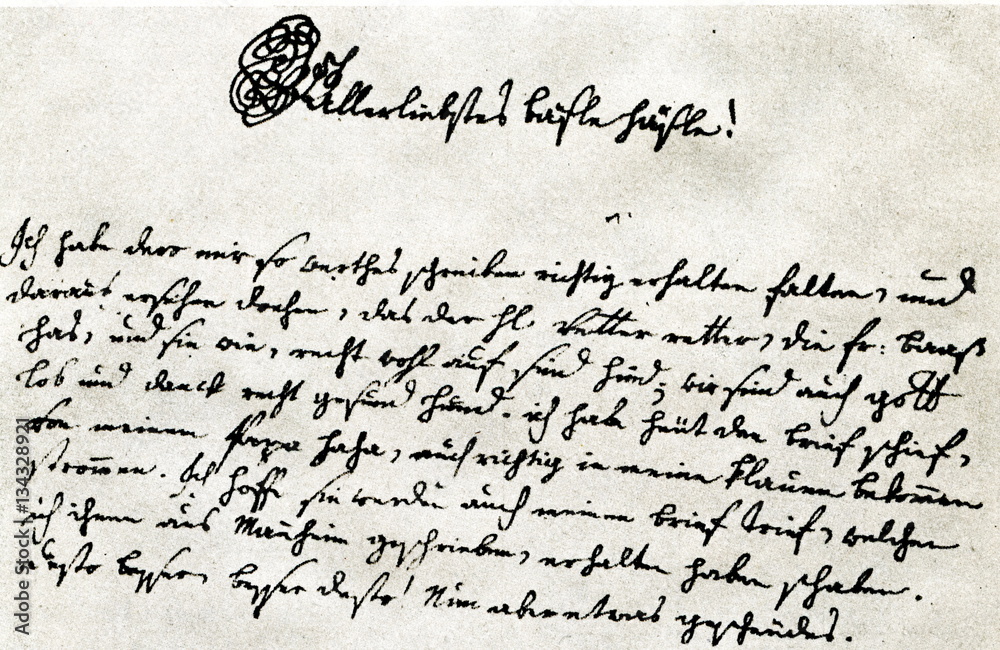 Allerliebstes bäsle häsle!
Ich habe dero mir so werthes schreiben richtig erhalten falten, und
daraus ersehen drehen, das der H: vetter retter, die fr: baaß
has, und sie wie, recht wohl auf sind hind; wir sind auch gott
lob und danck recht gesund hund. ich habe heüt den brief schief,
von meinem Papa haha, auch richtig in meine klauen bekommen
strommen. Ich hoffe sie werden auch meinen brief trief, welchen
ich ihnen aus Mannheim geschrieben, erhalten haben schaben.
desto besser, besser desto! Nun aber etwas gescheüdes.
Adobe Stock | #134328921